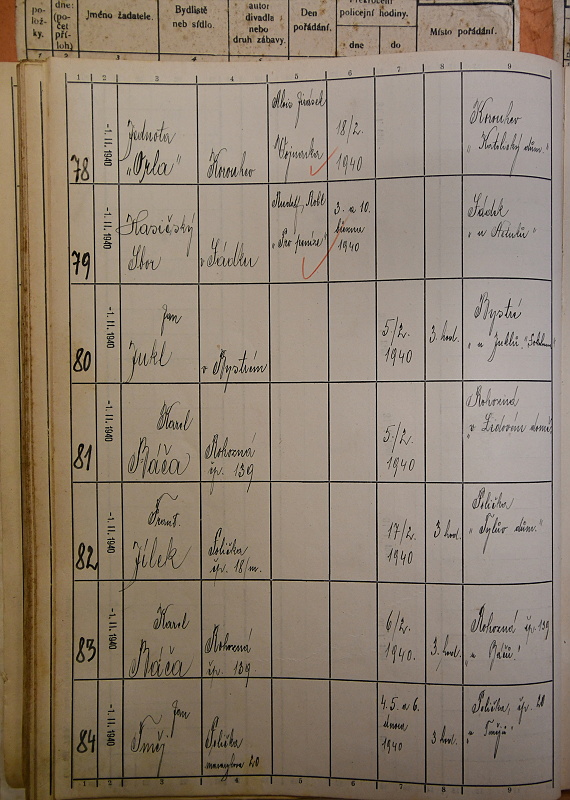 po-
ložky.
dne:
(po-
čet
pří-
loh)
Jméno žadatele.
Bydliště
neb sídlo.
autor
divadla
nebo
druh zábavy.
Den
pořádání.
Překročení
policejní hodiny.
dne
do
Místo pořádání.
1 2 3 4 5 6 7 8 9
78
-1. II. 1940
Jednota
"Orla"
Korouhev
Alois Jirásek
Vojnarka
18/2.
1940
Korouhev
"Katolický dům."
79
-1. II. 1940
Hasičský
Sbor
v Sádku
Rudolf
"Pro peníze"
3. a 10.
března
1940
Sádek
"u
80
-1. II. 1940
Jan
Jukl
v Bystrém
5/2.
1940
3. hod.
Bystré
"u Juklů"
81
-1. II. 1940
Karel
Báča
Rohozná
čp. 139
5/2.
1940
Rohozná
"v Lidovém domě
82
-1. II. 1940
Frant.
Jílek
Polička
čp. 18/m.
17/2.
1940
3 hod.
Polička
"Tylův dům."
83
-1. II. 1940
Karel
Báča
Rohozná
čp. 139
6/2.
1940.
3. hod.
Rohozná čp. 139
"u Báčů"
84
-1. II. 1940
Jan
Tměj
Polička
20
4. 5. a 6.
února
1940
3 hod.
Polička, čp. 20
"u Tmějů"
1 2 3 4 5 6 7 8 9